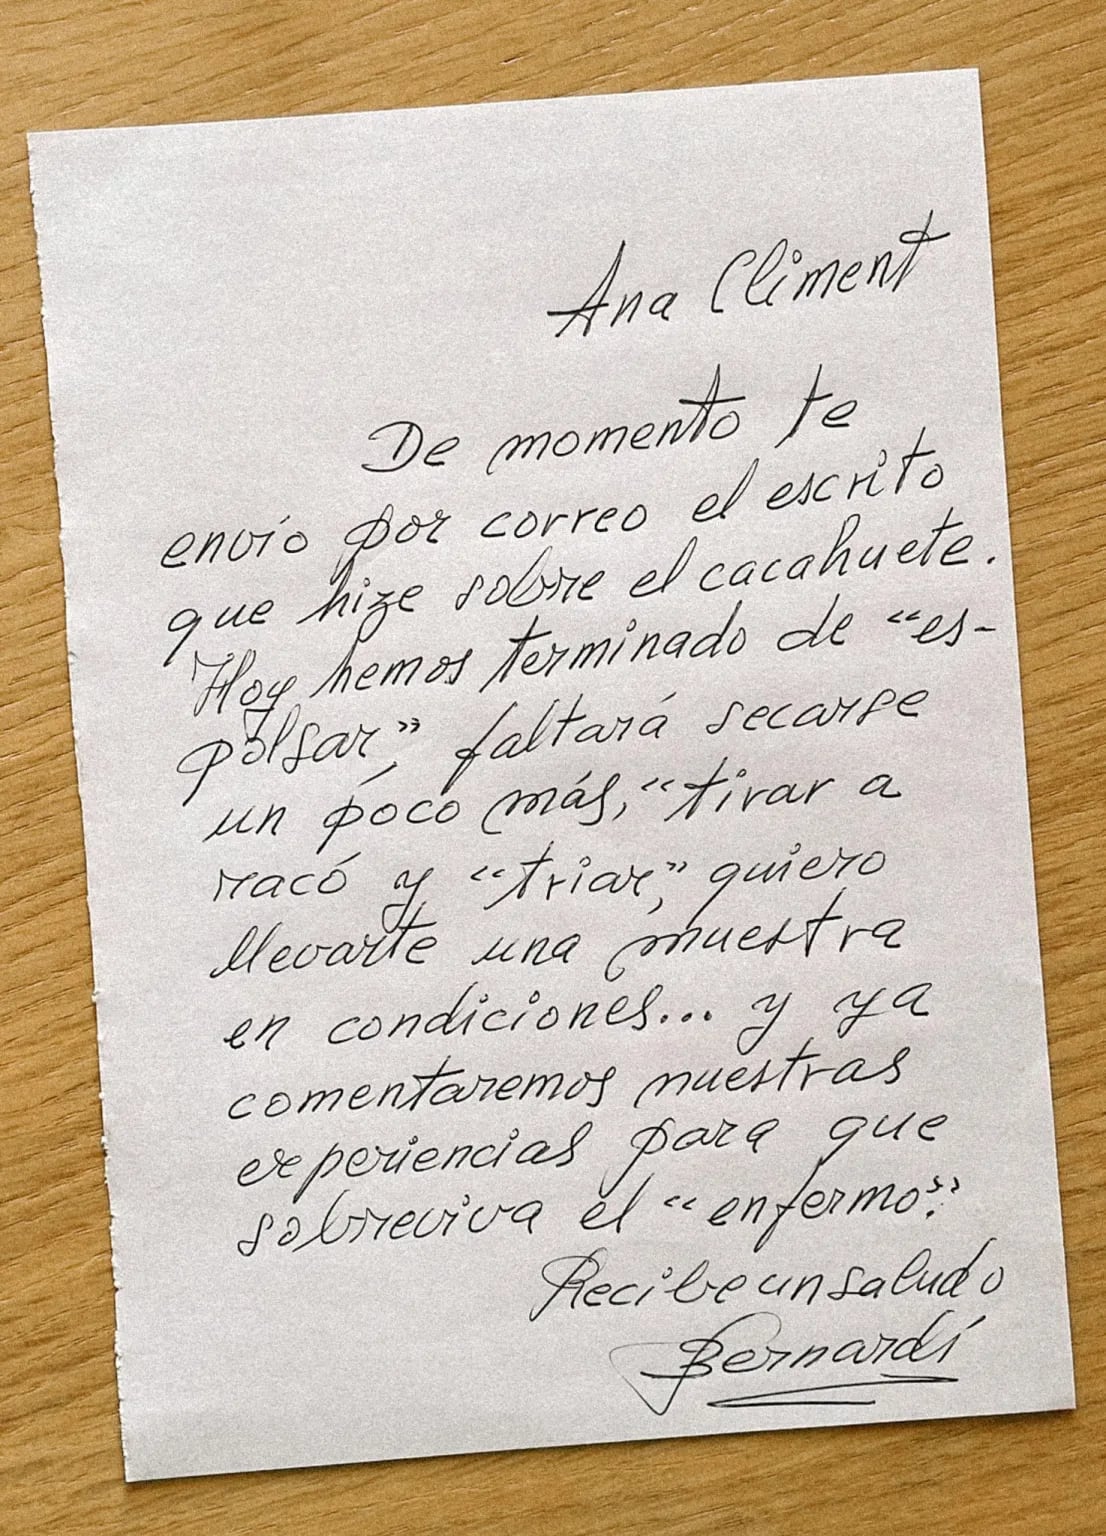 Ana Climent
De momento te
envío por correo el escrito
que hize sobre el cacahuete.
Hoy hemos terminado de “es-
polsar”, faltará secarse
un poco más, “tirar a
racó y “triar”, quiero
llevarte una muestra
en condiciones... y ya
comentaremos nuestras
experiencias para que
sobreviva el “enfermo”.
Recibe un saludo
Bernardí